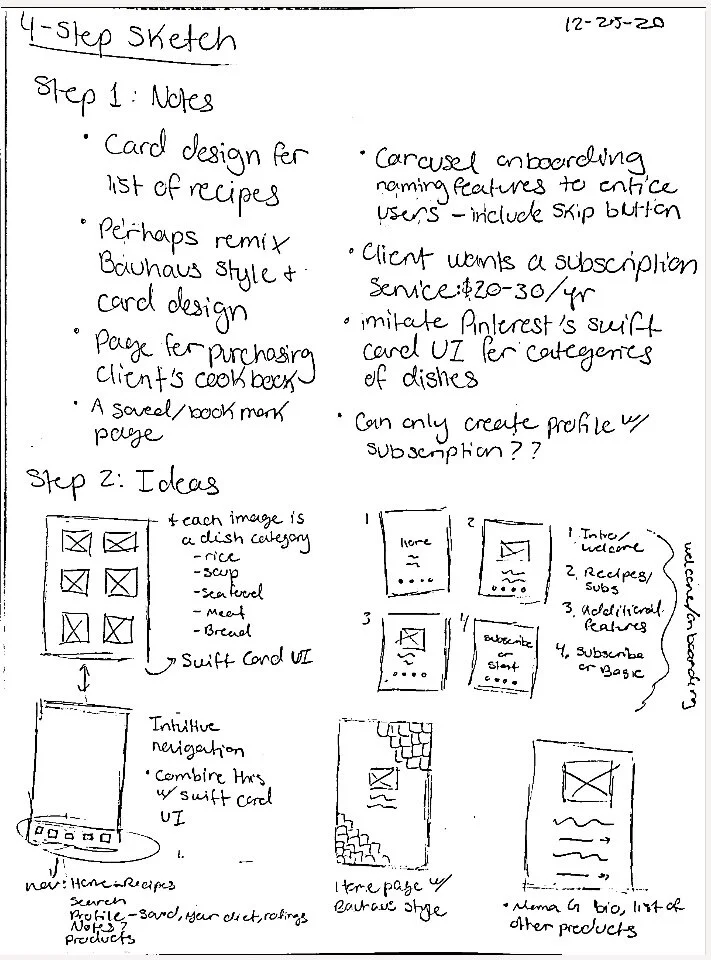 4-Step Sketch
12-25-20
Step 1: Notes
• Card design for
list of recipes
• Perhaps remix
Bauhaus style +
card design
• Page for purchasing
client's cookbook
• A saved/bookmark
page
• Carousel onboarding
naming features to entice
users – include skip button
• Client wants a subscription
service: $20-30/yr
• imitate Pinterest's swift
card UI for categories
of dishes
• Can only create profile w/
subscription??
Step 2: Ideas
+ each image is
a dish category
- rice
- soup
- seafood
- Meat
- Bread
Swift Card UI
1
Home
2
3
4
subscribe
or
start
1. Intro/
welcome
2. Recipes/
Subs
3. Additional
features
4. Subscribe
or Basic
welcome/onboarding
Intuitive
navigation
• Combine this
w/ swift card
UI
1.
nav: Home - Recipes
Search
Profile - saved, your diet, ratings
Notes?
Products
Home page w/
Bauhaus style
• Mama G bio, list of
other products